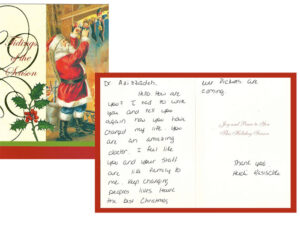 Tidings
of the
Season
Dr.
Hello How are
you? I had to write
you and tell you
again how you have
changed my life. you
are an amazing
doctor I feel like
you and your staff
are like family to
me. Keep changing
peoples lives Have
the best Christmas
ever Pictures are
coming.
Joy and Peace to You
This Holiday Season
Thank you
Heidi